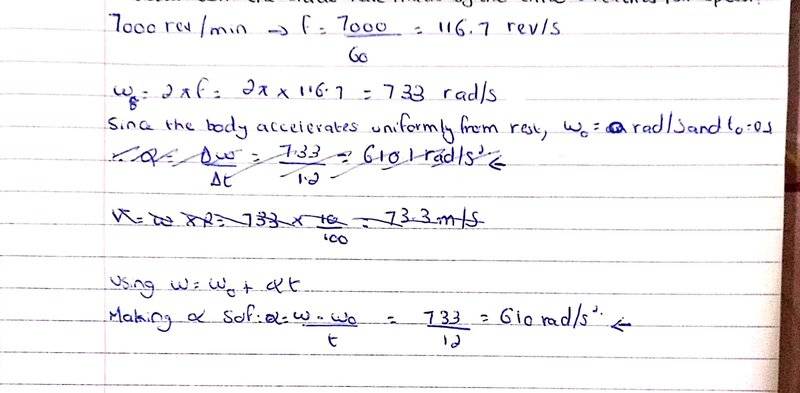 7000 rev/min → f = 7000/60 = 116.7 rev/s
ω = 2πf = 2π x 116.7 = 733 rad/s
Since the body accelerates uniformly from rest, ω₀ = 0 rad/s and t₀ = 0s
α = Δω/Δt = 733/1.2 = 610 rad/s² ←
v = ω x r = 733 x 10/100 = 73.3 m/s
Using ω = ω₀ + αt
Making α Sof: α = ω - ω₀/t = 733/12 = 610 rad/s² ←